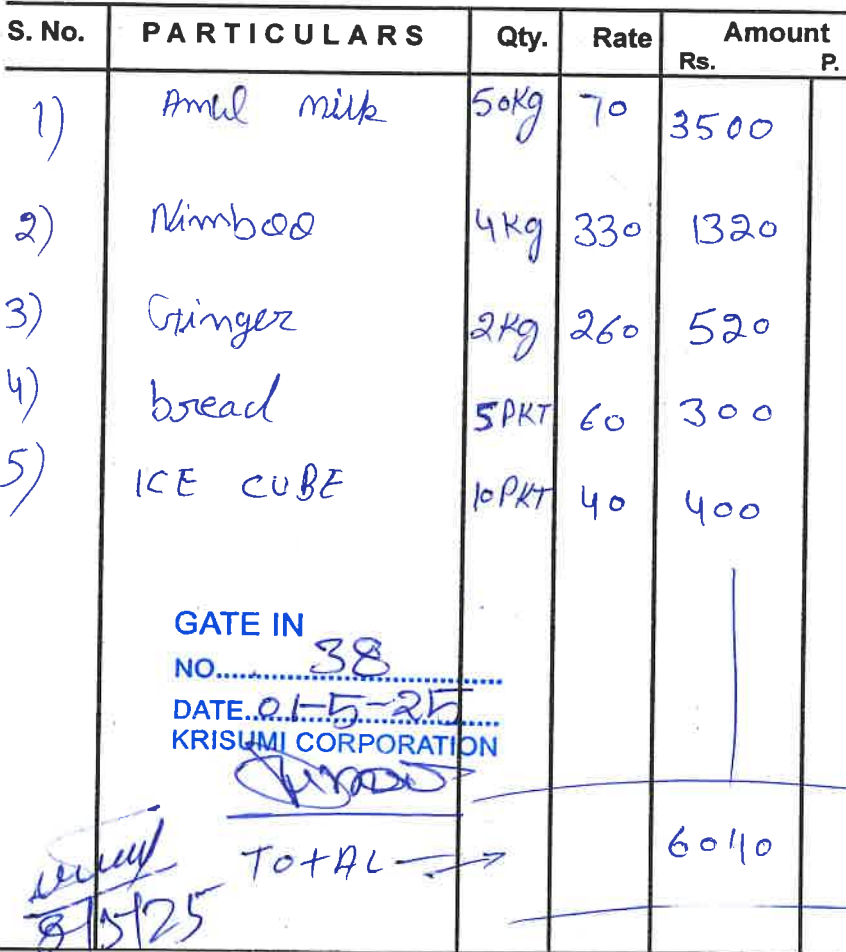 S. No. PARTICULARS Qty. Rate Amount
Rs. P.
1) Amul milk 50Kg 70 3500
2) Nimboo 4Kg 330 1320
3) Ginger 2Kg 260 520
4) bread 5PKT 60 300
5) ICE CUBE 10PKT 40 400
GATE IN
NO. 38
DATE. 01-5-25
KRISUMI CORPORATION
TOTAL → 6040
8/5/25